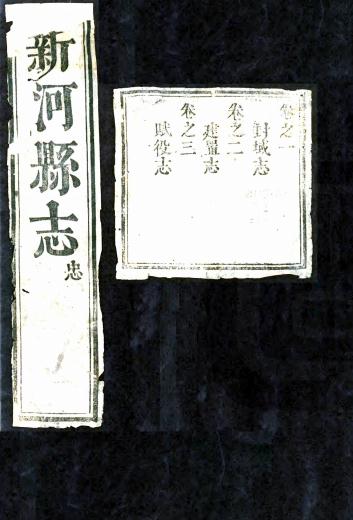 新河縣志
忠
卷之一
封域志
卷之二
建置志
卷之三
賦役志